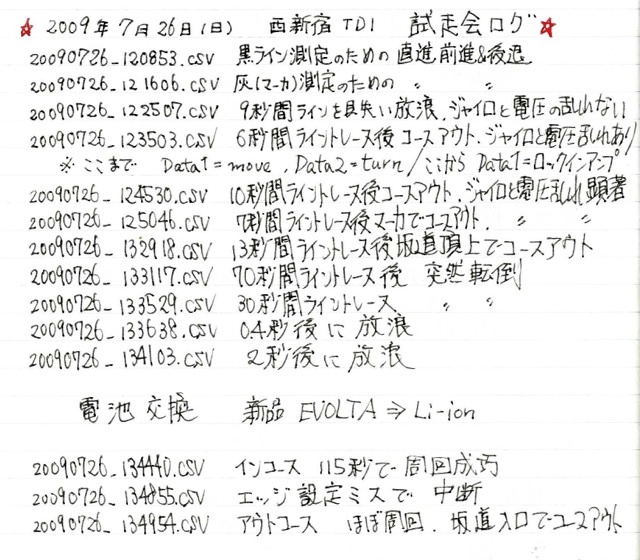 ☆ 2009年7月26日(日) 西新宿TDI 試走会ログ☆
20090726_120853.csv 黒ライン測定のための直進前進&後退
20090726_121606.csv 灰(マーカ)測定のための 〃 〃
20090726_122507.csv 9秒間ラインを見失い放浪、ジャイロと電圧の乱れない
20090726_123503.csv 6秒間ライントレース後コースアウト、ジャイロと電圧乱れあり
※ここまで Data1=move, Data2=turn/ここからData1=ロックインアンプ
20090726_124530.csv 10秒間ライントレース後コースアウト、ジャイロと電圧乱れ顕著
20090726_125046.csv 7秒間ライントレース後マーカでコースアウト、 〃 〃
20090726_132918.csv 13秒間ライントレース後坂道頂上でコースアウト
20090726_133117.csv 70秒間ライントレース後 突然転倒
20090726_133529.csv 30秒間ライントレース 〃 〃
20090726_133638.csv 0.4秒後に放浪
20090726_134103.csv 2秒後に放浪
電池交換 新品EVOLTA⇒Li-ion
20090726_134440.csv インコース 115秒で周回成功
20090726_134855.csv エッジ設定ミスで中断
20090726_134954.csv アウトコース ほぼ周回、坂道入口でコースアウト